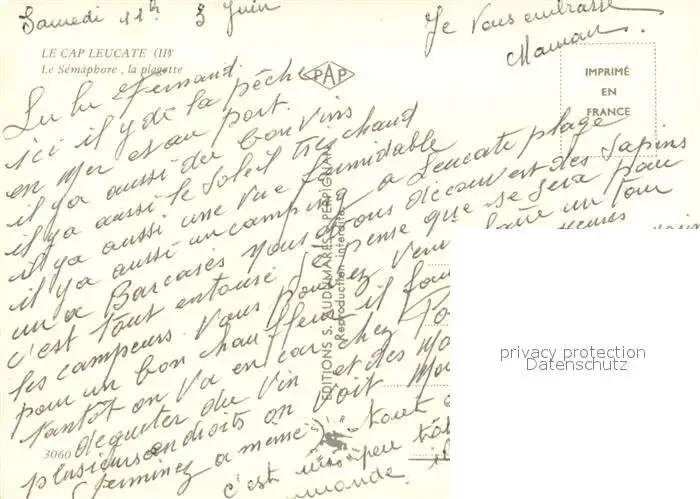 Samedi 11h 3 Juin
Je Vous embrasse
Maman
LE CAP LEUCATE (11)
Le Sémaphore, la plagette
PAP
IMPRIMÉ
EN
FRANCE
Lu lu Fernand.
ici il y de la pêche
en Mer et au port.
il ya aussi du bon Vins
il ya aussi le Soleil très chaud
il ya aussi une vue formidable
il ya aussi un camping a Leucate plage
un a Barcases nous avons découvert des Sapins
c'est tout entouré je pense que se Sera pour
les campeurs. Vous pouvez Venir faire un tour
pour un bon chauffeur il
tantôt on Va en car chez
déguster du Vin et des
plusieurs endroits on Voit
Terminez a même tout
c'est un peu
EDITIONS S. AUDUMARES, PERPIGNAN
Reproduction interdite
3060
privacy protection
Datenschutz